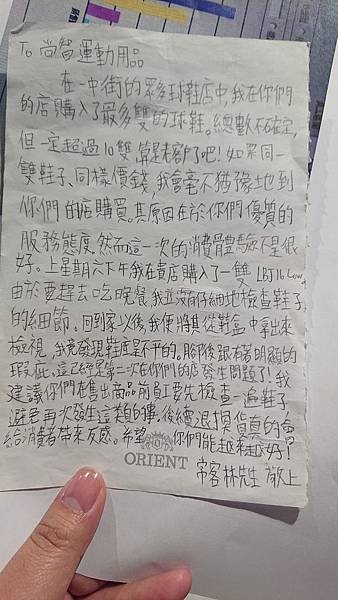 To 尚智運動用品
在一中街的眾多球鞋店中,我在你們
的店購入了最多雙的球鞋。總數不確定,
但一定超過10雙,算是老客戶了吧!如果同一
雙鞋子、同樣價錢,我會毫不猶豫地到
你們的店購買。其原因在於你們優質的
服務態度,然而這一次的消費體驗不是很
好。上星期六下午我在貴店購入了一雙 LBJ16 Low,
由於要趕去吃晚餐,我並沒有仔細地檢查鞋子
的細節。回到家以後,我便將其從鞋盒中拿出來
檢視,我竟發現鞋底是不平的。腳後跟有著明顯的
瑕疵,這已經是第二次在你們的店發生問題了!我
建議你們在售出商品前員工要先檢查一遍鞋子,
避免再次發生這類的事,後續退換貨真的會
給消費者帶來反感。希望你們能越來越好!
ORIENT
常客 林先生 敬上